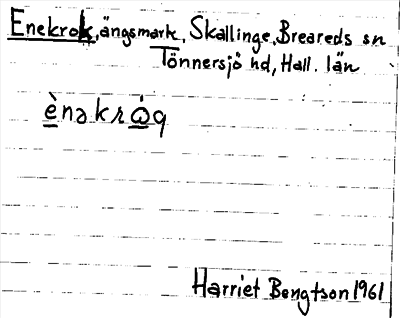 Enekrok, ängsmark, Skällinge, Breareds sn
Tönnersjö hd, Hall. län
ènəkrɷ̀q
Harriet Bengtson 1961